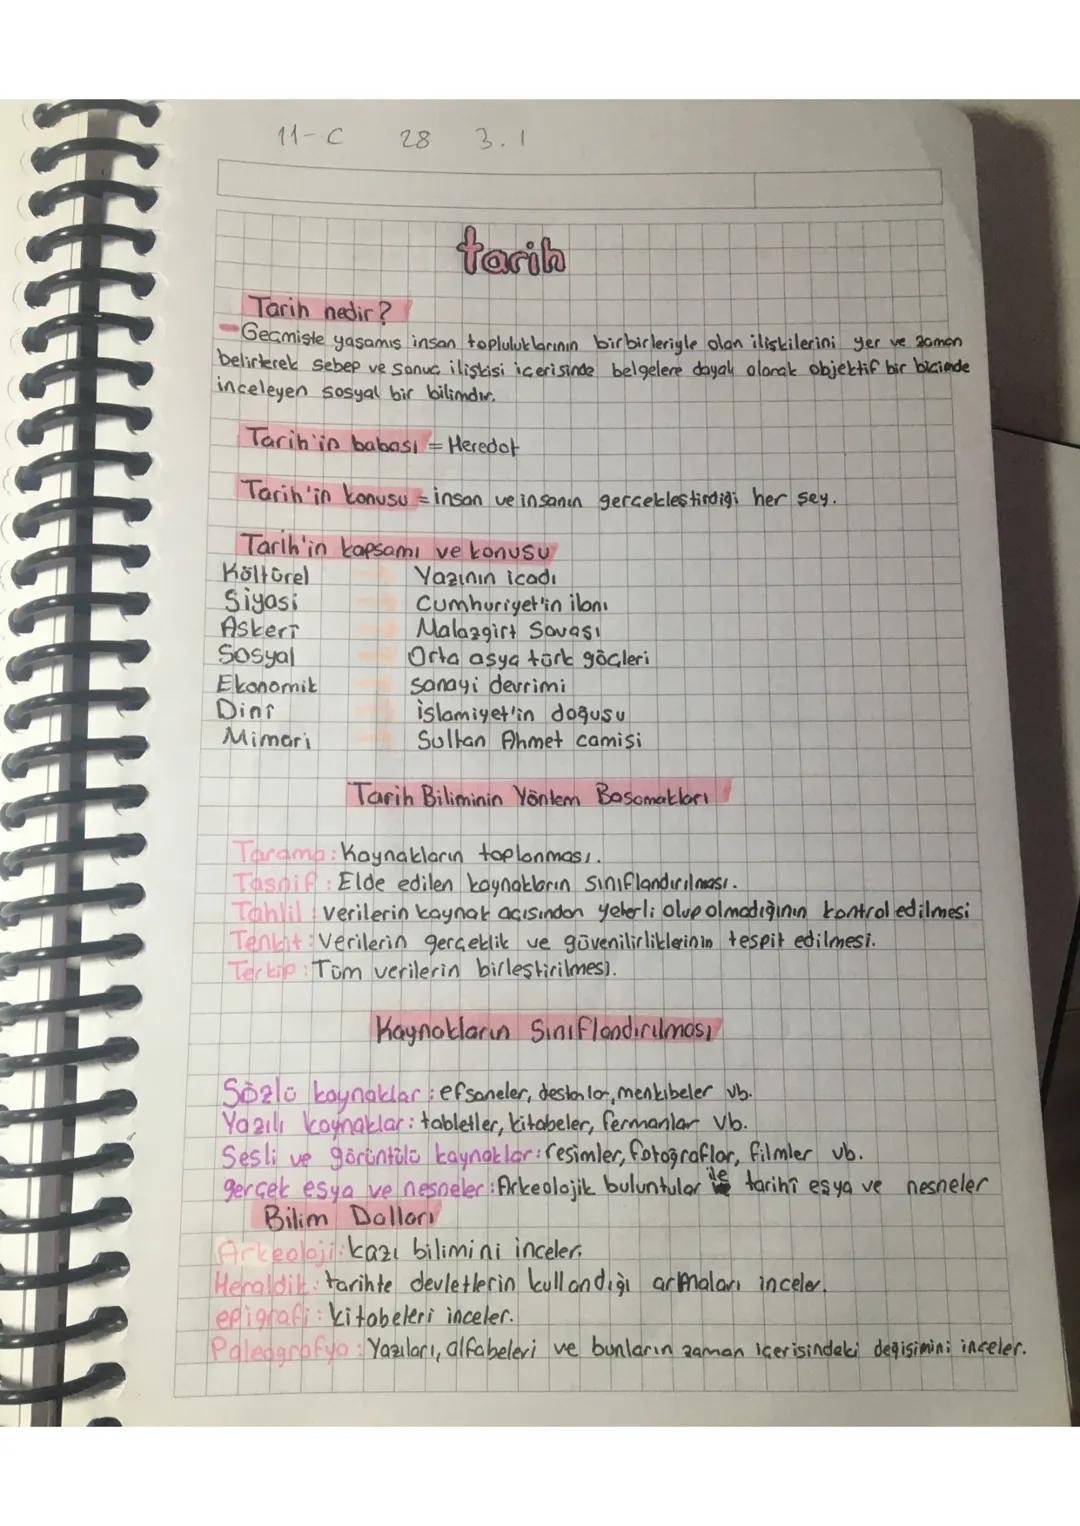 11-C 28 3.1
tarih
Tarih nedir?
Geçmişte yaşamış insan topluluklarının birbirleriyle olan ilişkilerini yer ve zaman
belirterek sebep ve sonuç ilişkisi içerisinde belgelere dayalı olarak objektif bir biçimde
inceleyen sosyal bir bilimdir.
Tarih'in babası = Heredot
Tarih'in konusu = insan ve insanın gerçekleştirdiği her şey.
Tarih'in kapsamı ve konusu
Kültürel Yazının icadı
Siyasi Cumhuriyet'in ilanı
Askerî Malazgirt Savaşı
Sosyal Orta asya türk göçleri
Ekonomik sanayi devrimi
Dinî islamiyet'in doğuşu
Mimari Sultan Ahmet camisi
Tarih Biliminin Yöntem Basamakları
Tarama: Kaynakların toplanması.
Tasnif: Elde edilen kaynakların sınıflandırılması.
Tahlil: verilerin kaynak açısından yeterli olup olmadığının kontrol edilmesi
Tenkit: Verilerin gerçeklik ve güvenilirliklerinin tespit edilmesi.
Terkip: Tüm verilerin birleştirilmesi.
Kaynakların Sınıflandırılması
Sözlü kaynaklar: efsaneler, destanlar, menkıbeler vb.
Yazılı kaynaklar: tabletler, kitabeler, fermanlar vb.
Sesli ve görüntülü kaynaklar: resimler, fotoğraflar, filmler vb.
gerçek eşya ve nesneler: Arkeolojik buluntular ile tarihî eşya ve nesneler
Bilim Dalları
Arkeoloji: kazı bilimini inceler.
Heraldik: tarihte devletlerin kullandığı armaları inceler.
epigrafi: kitabeleri inceler.
Paleografya: Yazıları, alfabeleri ve bunların zaman içerisindeki değişimini inceler.